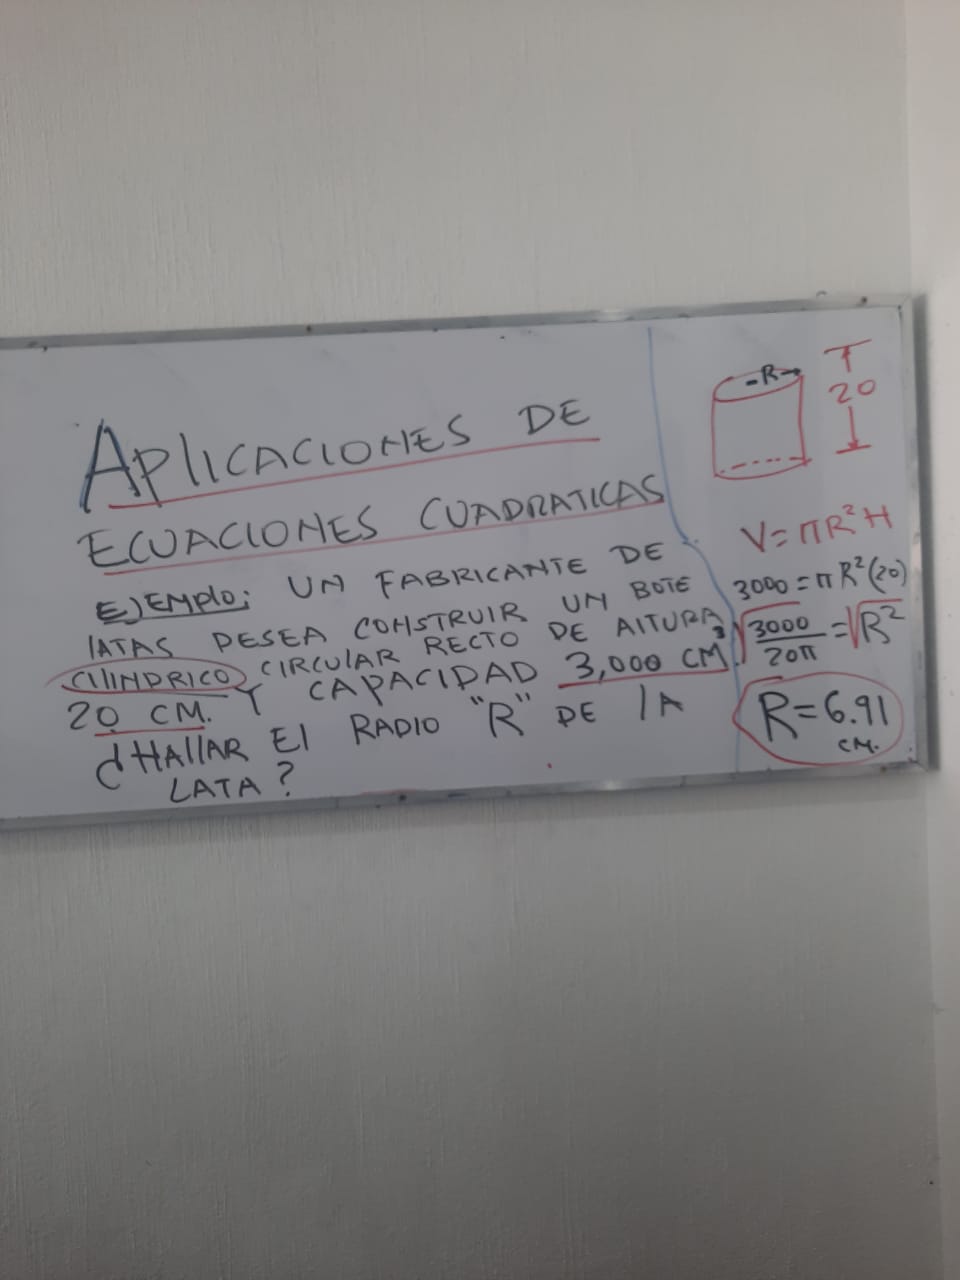 APlICACIONES DE
ECUACIONES CUADRATICAS
EJEMPlO: UN FABRICANTE DE
lATAS DESEA CONSTRUIR UN BOTE
CIlINDRICO CIRCULAR RECTO DE AlTURA
20 CM. Y CAPACIDAD 3,000 CM³.
¿HAllAR El RADIO "R" DE lA
LATA?
R
20
V=πR²H
3000=πR²(20)
√3000/20π=√R²
R=6.91
CM.